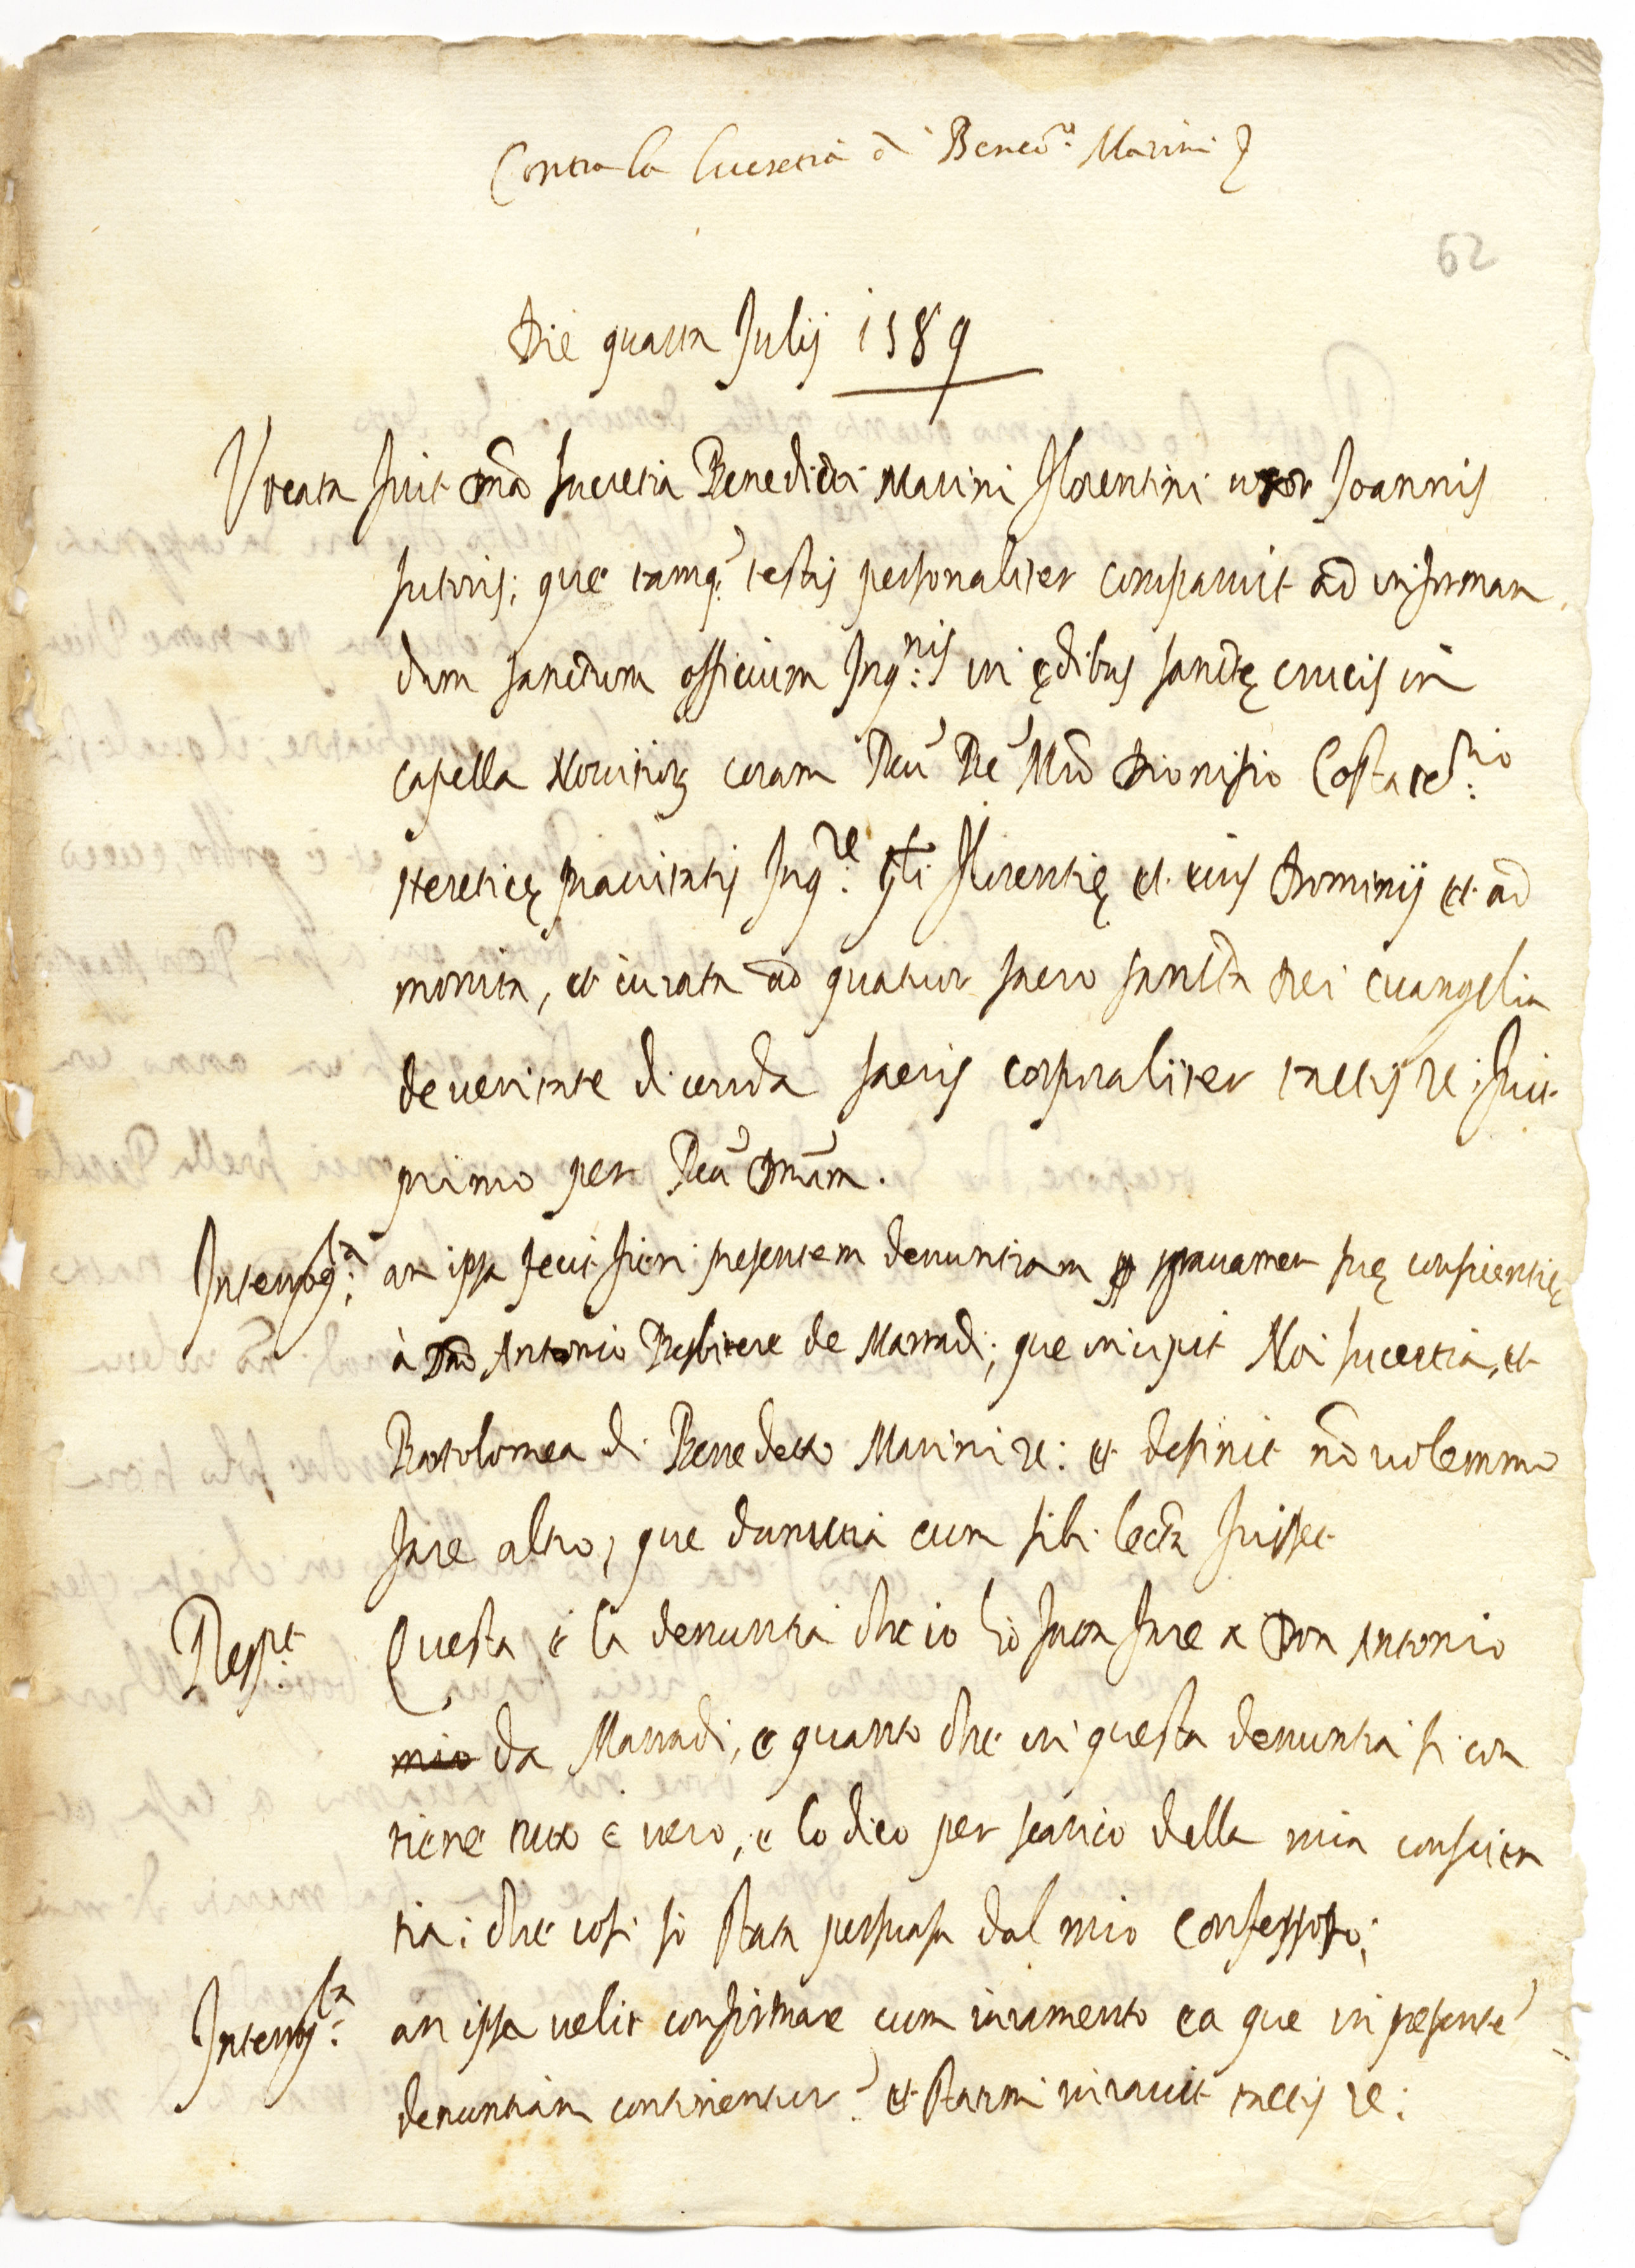 Contra la Lucretia di Bened.º Marini
62
Die quarta Julij 1589
Vocata fuit dna Lucretia Benedicti Marini Florentini uxor Joannis
sutoris; que tamq: testis personaliter comparuit ad informan
dum sanctum officium Inq:nis in ędibus sanctę crucis in
capella Novitiorum coram Rdu Pre Mro Dionisio Costacc:rio
Hereticę pravitatis Inq:re gnli Florentię et eius Dominij et ad
monita, et iurata ad quatuor sacro sancta Dei evangelia
de veritate dicenda sacris corporaliter tactis re: fuit
primo per Rdu Dnum.
Interrog:ta an ipsa fecit fieri presentem denuntiam p gravamen suę conscientię
à Dno Antonio Presbitere de Marradi; que incipit Noi Lucretia, et
Bartolomea di Benedetto Marini re: et desinit nō volemmo
fare altro, que denuntia cum sibi lecta fuisset
Resp:it Questa è la denuntia che io hò fatta fare a Don Antonio
mio da Marradi, e quanto che in questa denuntia si con
tiene tutto è vero, e lo dico per scarico della mia conscien
tia: che cosi sò stata persuasa dal mio confessoro;
Interrog:ta an ipsa velit confirmare cum iuramento ea que in presente
denuntiam continentur? et statim iuravit tactis re: